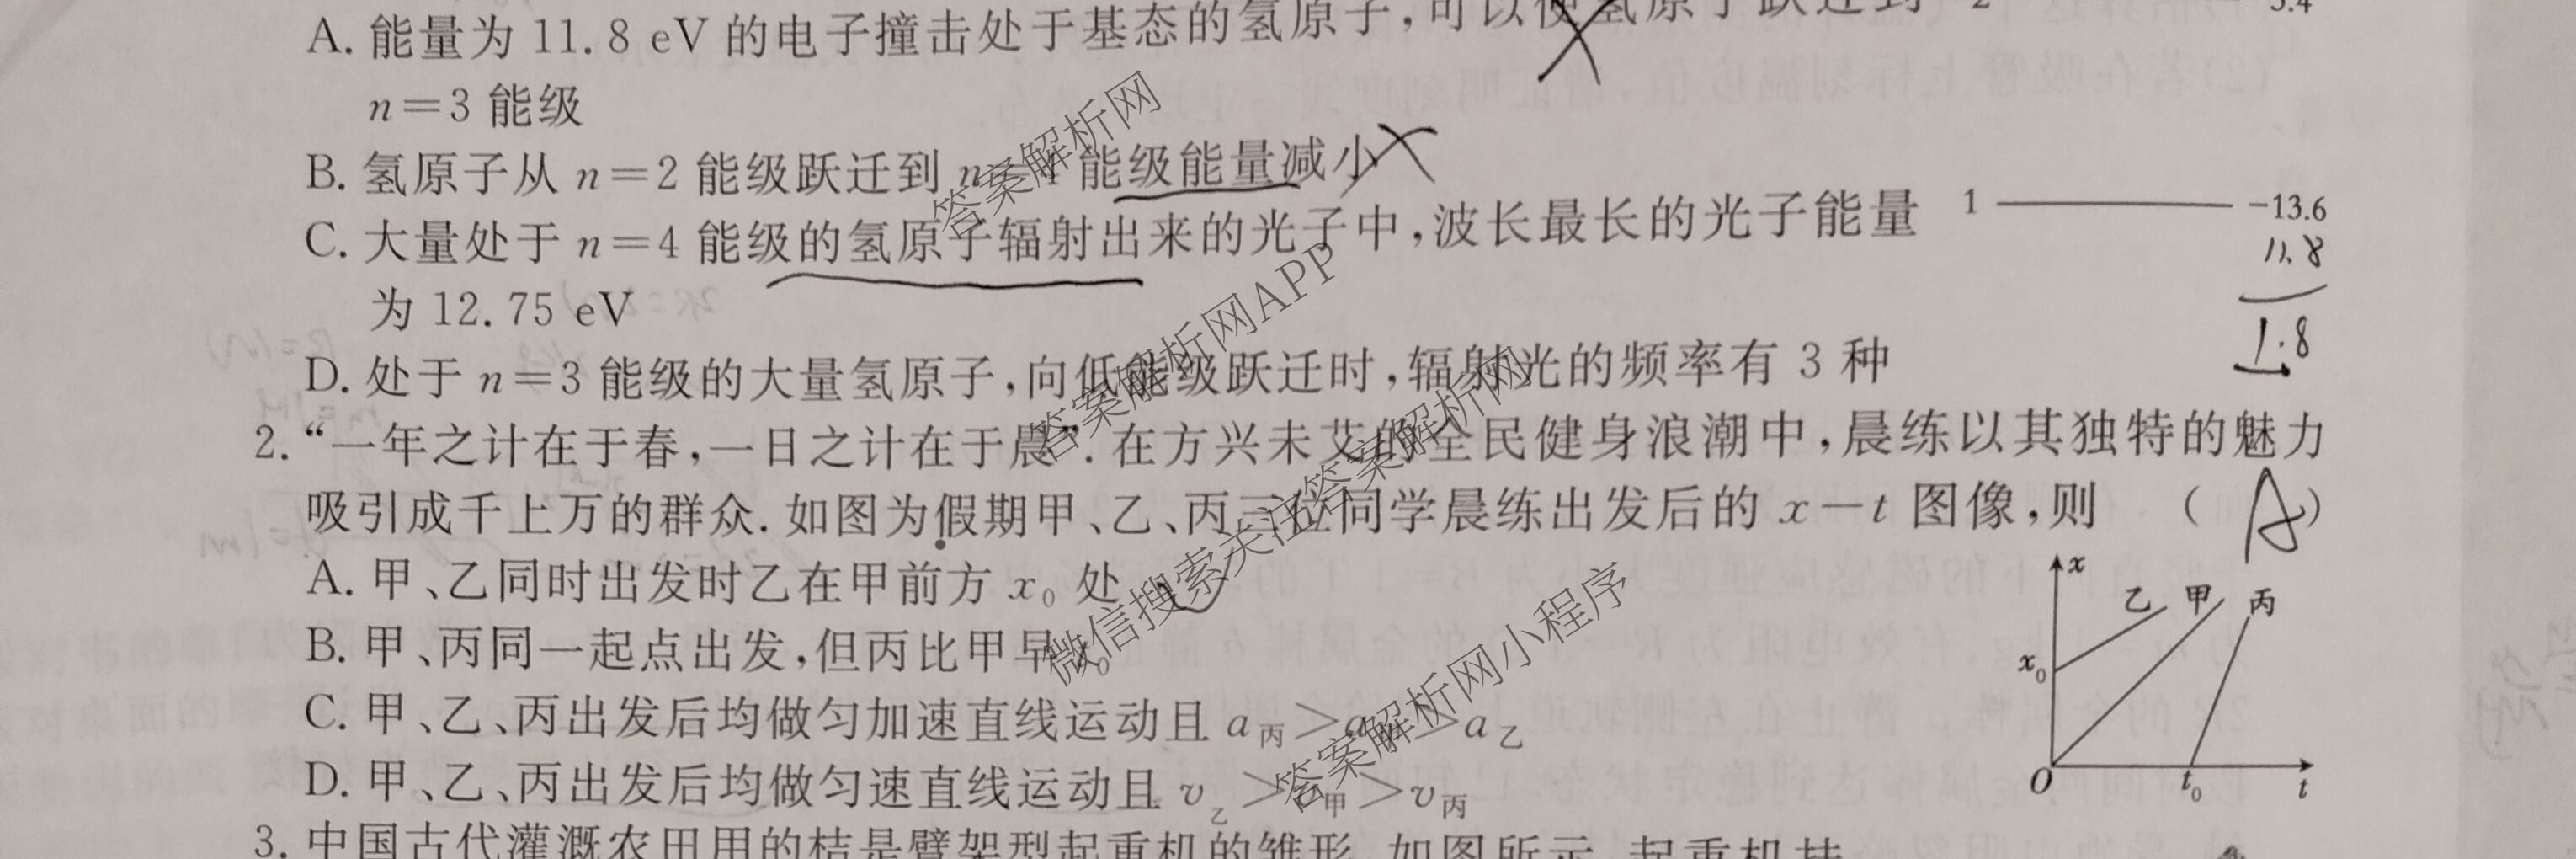 A. 能量为 11.8 eV 的电子撞击处于基态的氢原子,可以使氢原子跃迁到
2 -3.4
n=3 能级
B. 氢原子从 n=2 能级跃迁到 n= 能级能量减小
C. 大量处于 n=4 能级的氢原子辐射出来的光子中,波长最长的光子能量
1 -13.6
11.8
为 12.75 eV
1.8
D. 处于 n=3 能级的大量氢原子,向低能级跃迁时,辐射光的频率有 3 种
2. “一年之计在于春,一日之计在于晨”. 在方兴未艾的全民健身浪潮中,晨练以其独特的魅力
吸引成千上万的群众. 如图为假期甲、乙、丙三位同学晨练出发后的 x-t 图像,则 ( A )
A. 甲、乙同时出发时乙在甲前方 x₀ 处
B. 甲、丙同一起点出发,但丙比甲早
C. 甲、乙、丙出发后均做匀加速直线运动且 a丙>a >a乙
D. 甲、乙、丙出发后均做匀速直线运动且 v乙>v甲>v丙
x
乙 甲 丙
x₀
O t₀ t
3. 中国古代灌溉农田用的桔是臂架型起重机的雏形.如图所示,起重机挂
答案解析网
答案解析网APP
微信搜索关注答案解析网
答案解析网小程序